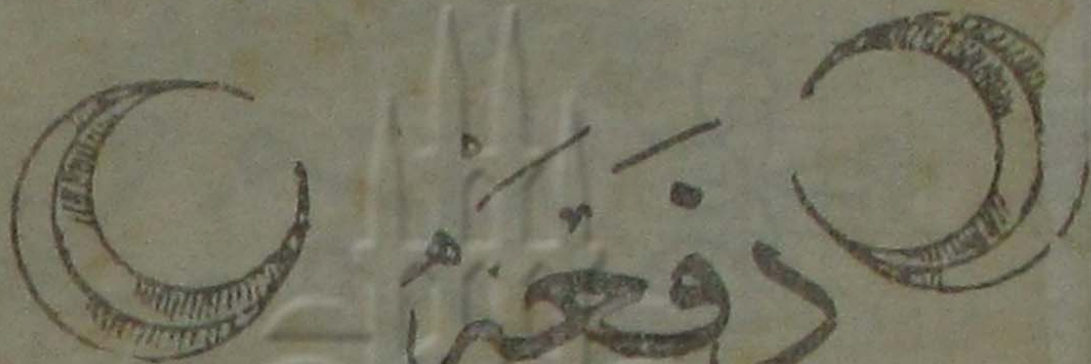 دَفْعَهْ